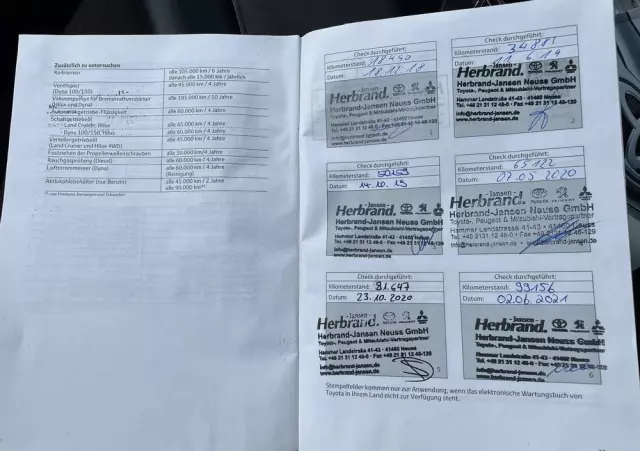 Zusätzlich zu untersuchen
Keilriemen
alle 105.000 km / 6 Jahre
danach alle 15.000 km / jährlich
Ventilspiel
(Dyna 100/150)
alle 45.000 km / 2 Jahre
Vakuumpumpe für Bremskraftverstärker
(Hilux und Dyna)
alle 195.000 km / 10 Jahre
Automatikgetriebe-Flüssigkeit
alle 60.000 km / 4 Jahre
Schaltgetriebeöl
- Land Cruiser, Hilux
alle 45.000 km / 4 Jahre
- Dyna 100/150, Hilux
alle 60.000 km / 4 Jahre
Verteilergetriebeöl
(Land Cruiser und Hilux 4WD)
alle 45.000 km / 4 Jahre
Festziehen der Propellerwellenschrauben
alle 30.000 km/4 Jahre
Rauchgasprüfung (Diesel)
alle 60.000 km / 4 Jahre
Luftstrommesser (Dyna)
alle 60.000 km / 4 Jahre
(Reinigung)
Aktivkohlebehälter (nur Benzin)
alle 45.000 km / 2 Jahre
alle 90.000 km
Check durchgeführt:
Kilometerstand: 18450
Datum: 18.12.18
Herbrand.
Herbrand-Jansen Neuss GmbH
Toyota-, Peugeot & Mitsubishi-Vertragspartner
Hammer Landstrasse 41-43 · 41460 Neuss
Check durchgeführt:
Kilometerstand: 34881
Datum:
Herbrand.
Herbrand-Jansen Neuss GmbH
Toyota-, Peugeot & Mitsubishi-Vertragspartner
Hammer Landstrasse 41-43 · 41460 Neuss
Check durchgeführt:
Kilometerstand: 50153
Datum: 14.10.19
- Jansen -
Herbrand.
Herbrand-Jansen Neuss GmbH
Toyota-, Peugeot & Mitsubishi-Vertragspartner
Hammer Landstrasse 41-43 · 41460 Neuss
info@herbrand-jansen.de
www.herbrand-jansen.de
Check durchgeführt:
Kilometerstand: 65122
Datum: 07.05.2020
- Jansen -
Herbrand.
Herbrand-Jansen Neuss GmbH
Toyota-, Peugeot & Mitsubishi-Vertragspartner
Hammer Landstrasse 41-43 · 41460 Neuss
Check durchgeführt:
Kilometerstand: 81.647
Datum: 23.10.2020
- Jansen -
Herbrand.
Herbrand-Jansen Neuss GmbH
Toyota-, Peugeot & Mitsubishi-Vertragspartner
Hammer Landstraße 41-43 · 41460 Neuss
info@herbrand-jansen.de
www.herbrand-jansen.de
5
Check durchgeführt:
Kilometerstand: 99156
Datum: 02.06.2021
- Jansen -
Herbrand.
Herbrand-Jansen Neuss GmbH
Toyota-, Peugeot & Mitsubishi-Vertragspartner
Hammer Landstraße 41-43 · 41460 Neuss
info@herbrand-jansen.de
www.herbrand-jansen.de
6
Stempelfelder kommen nur zur Anwendung, wenn das elektronische Wartungsbuch von
Toyota in Ihrem Land nicht zur Verfügung steht.